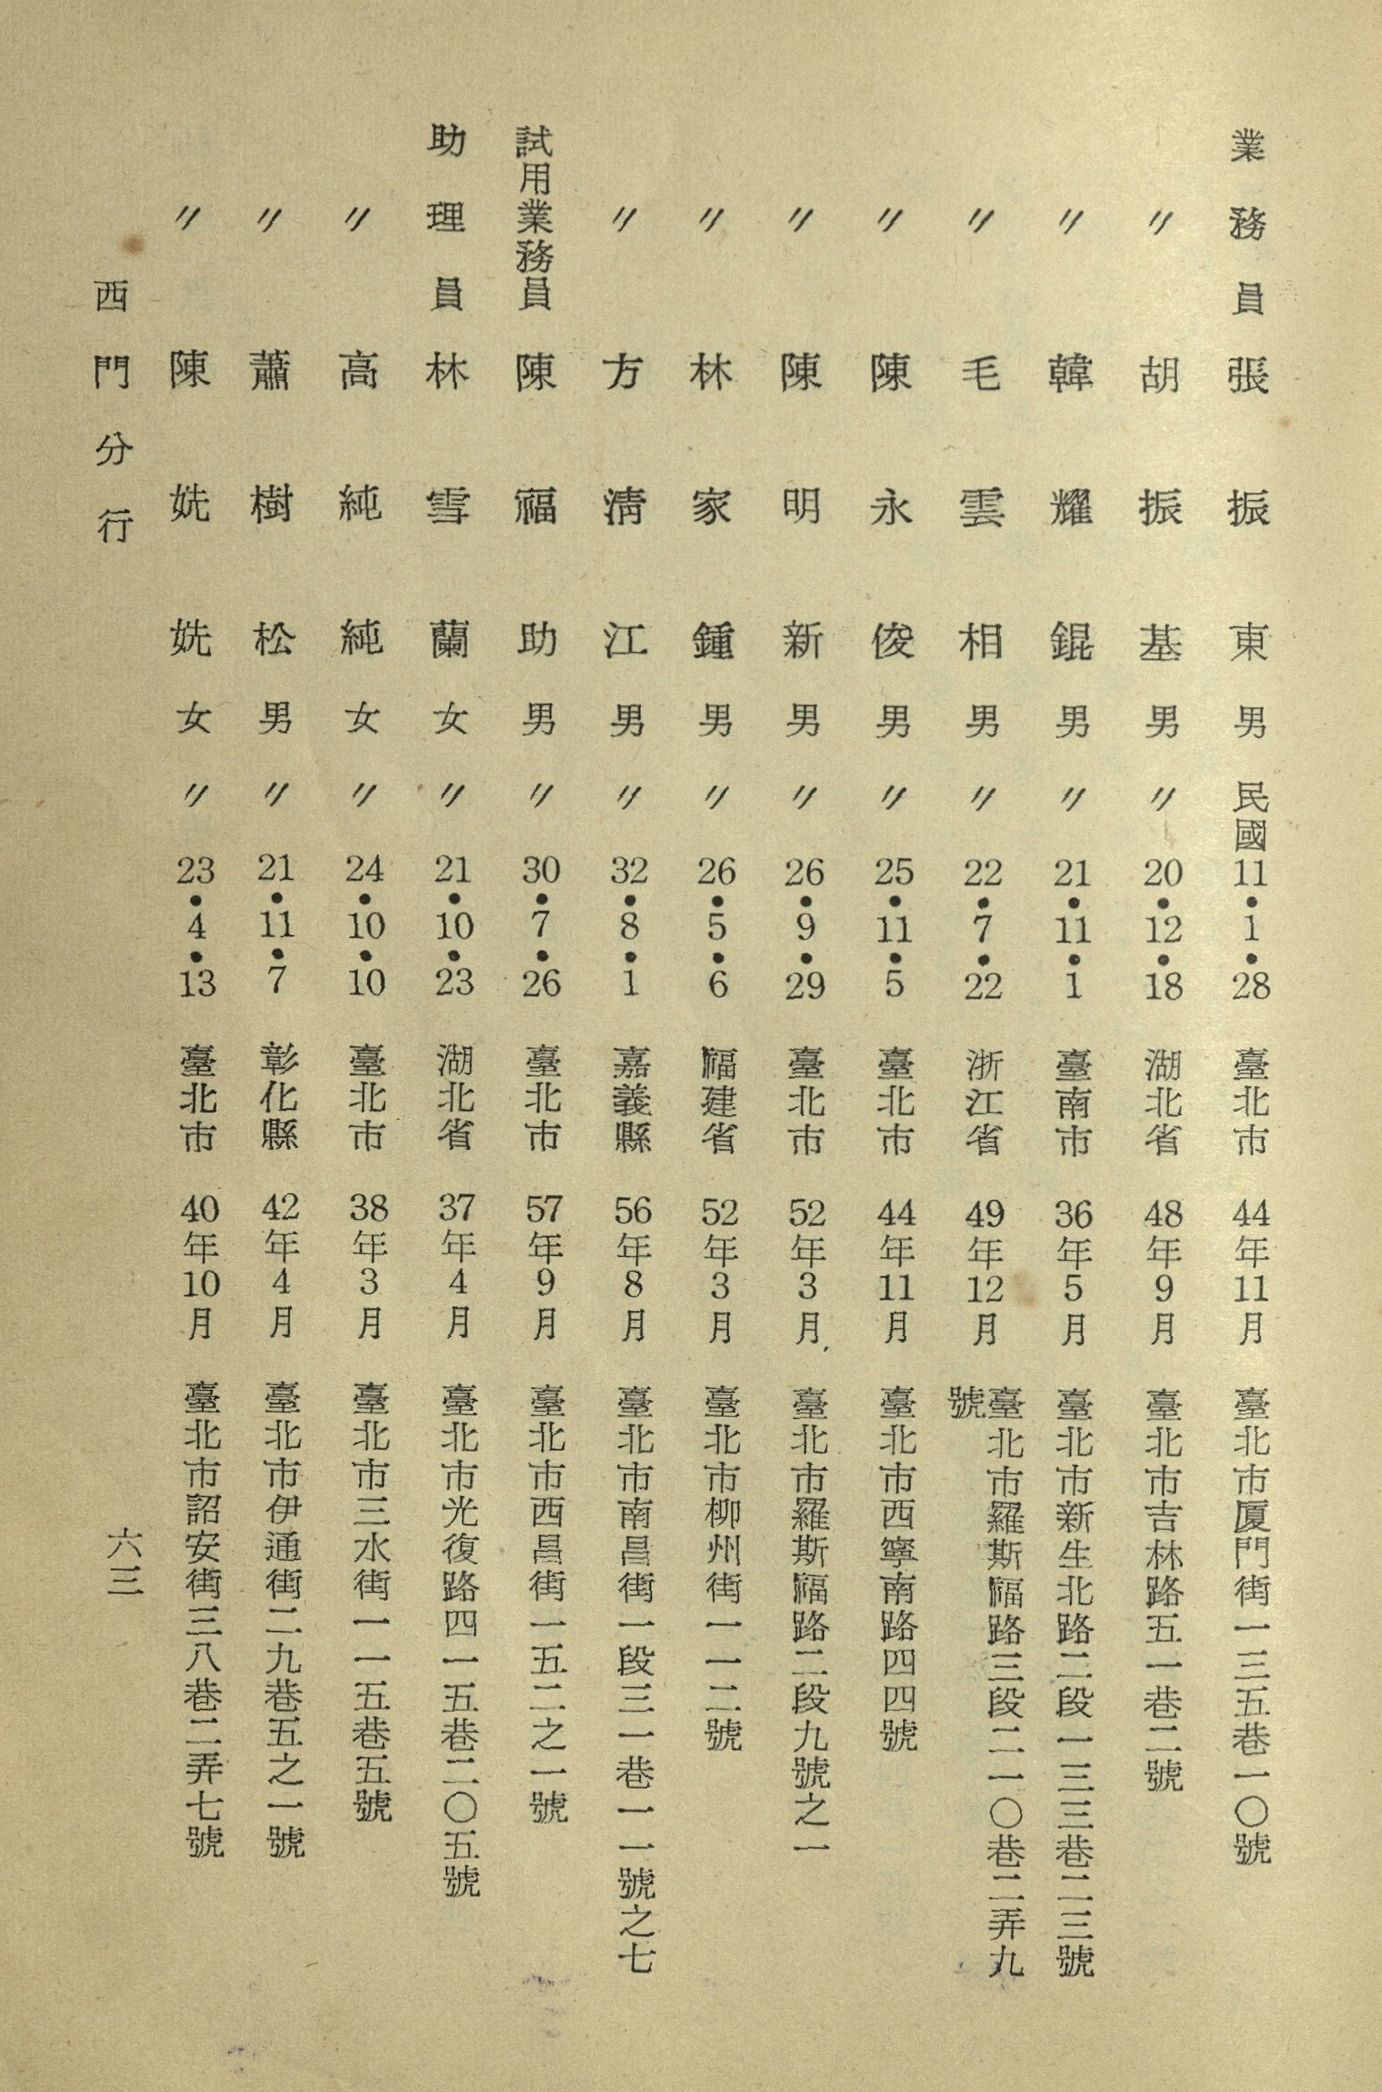 業務員 張振東 男 民國11•1•28 臺北市 44年11月 臺北市厦門街一三五巷一〇號
〃 胡振基 男 〃20•12•18 湖北省 48年9月 臺北市吉林路五一巷二號
〃 韓耀錕 男 〃21•11•1 臺南市 36年5月 臺北市新生北路二段一三三巷二三號
〃 毛雲相 男 〃22•7•22 浙江省 49年12月 臺北市羅斯福路三段二一〇巷二弄九
號
〃 陳永俊 男 〃25•11•5 臺北市 44年11月 臺北市西寧南路四四號
〃 陳明新 男 〃26•9•29 臺北市 52年3月 臺北市羅斯福路二段九號之一
〃 林家鍾 男 〃26•5•6 福建省 52年3月 臺北市柳州街一一二號
〃 方淸江 男 〃32•8•1 嘉義縣 56年8月 臺北市南昌街一段三一巷一一號之七
試用業務員 陳福助 男 〃30•7•26 臺北市 57年9月 臺北市西昌街一五二之一號
助理員 林雪蘭 女 〃21•10•23 湖北省 37年4月 臺北市光復路四一五巷二〇五號
〃 高純純 女 〃24•10•10 臺北市 38年3月 臺北市三水街一一五巷五號
〃 蕭樹松 男 〃21•11•7 彰化縣 42年4月 臺北市伊通街二九巷五之一號
〃 陳姺姺 女 〃23•4•13 臺北市 40年10月 臺北市詔安街三八巷二弄七號
西門分行
六三